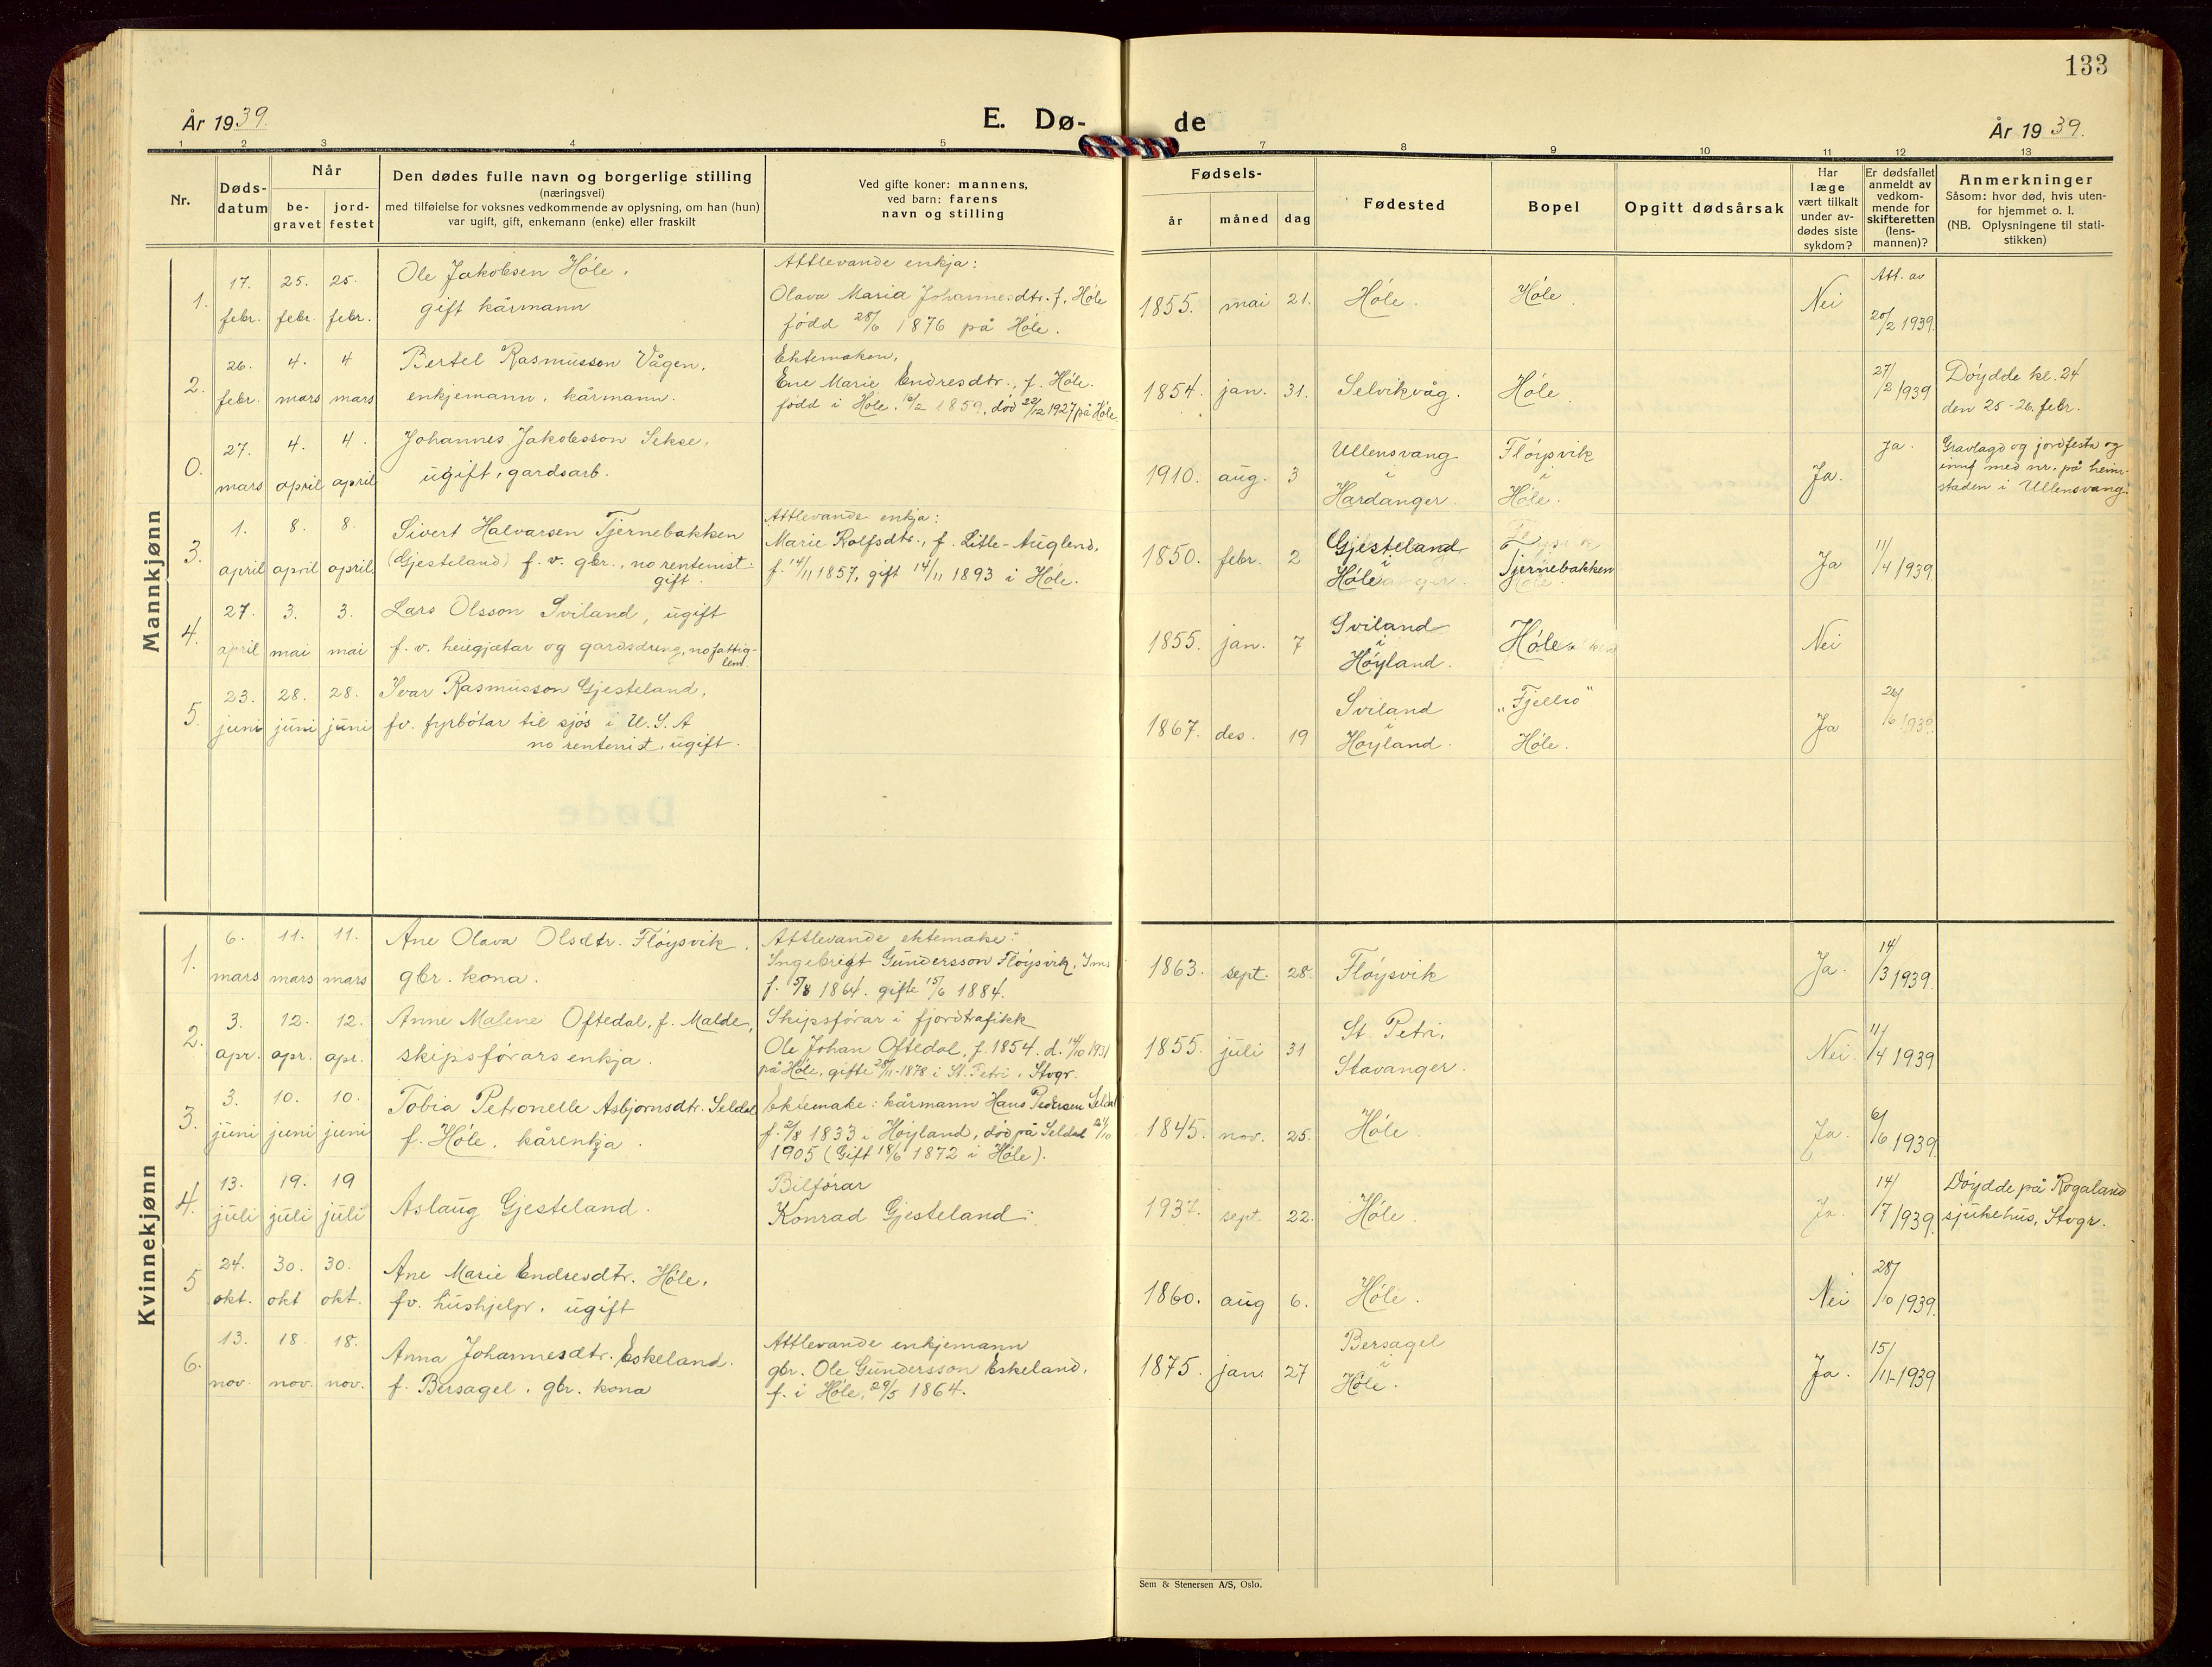 133
År 1939.
E. Dø-
de
År 1939.
1 2 3 4 5 7 8 9 10 11 12 13
Nr.
Døds-
datum
Når
be-
gravet
jord-
festet
Den dødes fulle navn og borgerlige stilling
(næringsvei)
med tilføielse for voksnes vedkommende av oplysning, om han (hun)
var ugift, gift, enkemann (enke) eller fraskilt
Ved gifte koner: mannens,
ved barn: farens
navn og stilling
Fødsels-
år
måned
dag
Fødested
Bopel
Opgitt dødsårsak
Har
læge
vært tilkalt
under av-
dødes siste
sykdom?
Er dødsfallet
anmeldt av
vedkom-
mende for
skifteretten
(lens-
mannen)?
Anmerkninger
Såsom: hvor død, hvis uten-
for hjemmet o. l.
(NB. Oplysningene til stati-
stikken)
Mannkjønn
1.
17.
febr.
25.
febr.
25.
febr.
Ole Jakobsen Høle,
gift kårmann
Attlevande enkja:
Olava Maria Johannesdtr. f. Høle
født 28/6 1876 på Høle.
1855. mai 21.
Høle.
Høle
Nei
Att. av
20/2 1939.
2.
26.
febr.
4.
mars
4
mars
Bertel Rasmusson Vågen,
enkjemann, kårmann.
Ektemaken,
Ene Marie Endresdtr., f. Høle.
født i Høle, 16/2 1859, død 22/12 1927 på Høle
1854. jan. 31.
Selvikvåg.
Høle
27/2 1939
Døydde kl. 24
den 25-26. febr.
0.
27.
mars
4.
april
4.
april
Johannes Jakobsson Sekse,
ugift, gardsarb.
1910. aug. 3
Ullensvang
i
Hardanger.
Fløysvik
i
Høle.
Ja.
Ja.
Gravlagd og jordfesta og
innf med nr. på heim-
staden i Ullensvang.
3.
1.
april
8.
april
8.
april.
Sivert Halvarsen Tjernebakken
(Gjesteland) f. v. gbr., no rentenist
gift.
Attlevande enkja:
Marie Rolfsdtr., f. Litle-Auglend,
f. 14/11 1857, gift 14/11 1893 i Høle.
1850. febr. 2
Gjesteland
i
Høle
Tjernebakken
Ja
11/4 1939.
4.
27.
april
3.
mai
3.
mai
Lars Olsson Sviland, ugift
f. v. heiegjætar og gardsdreng, no fattig-
lem.
1855. jan. 7
Sviland
i
Høyland.
Høle
Nei
5.
23.
juni
28.
juni
28.
juni
Ivar Rasmusson Gjesteland,
fv. fyrbøtar til sjøs i U.S.A
no rentenist, ugift.
1867. des. 19
Sviland
i
Høyland.
"Fjellro"
Høle.
Ja
26/6 1939.
Kvinnekjønn
1.
6.
mars
11.
mars
11.
mars
Ane Olava Olsdtr. Fløysvik,
gbr. kona.
Attlevande ektemake:
Ingebrigt Gundersson Fløysvik, Ims
f. 5/8 1864. gifte 15/6 1884.
1863. sept. 28.
Fløysvik
Ja.
14/3 1939.
2.
3.
apr.
12.
apr.
12.
apr.
Anne Malene Oftedal, f. Malde,
skipsførars enkja.
Skipsførar i fjordtrafikk
Ole Johan Oftedal, f. 1854. d. 14/10 1931
på Høle, gifte 28/11-1878 i St. Petri, Stvgr.
1855. juli 31
St. Petri,
Stavanger.
Nei.
11/4 1939
3.
3.
juni
10.
juni
10.
juni
Tobia Petronelle Asbjørnsdtr. Seldal
f. Høle. kårenkja.
Ektemake: kårmann Hans Pedersen Seldal
f. 2/8 1833 i Høyland, død på Seldal 24/10
1905 (Gift 18/6 1872 i Høle).
1845. nov. 25.
Høle.
Ja.
6/6 1939.
4.
13.
juli
19.
juli
19
juli
Aslaug Gjesteland.
Bilførar
Konrad Gjesteland.
1937. sept. 22.
Høle.
Ja.
14/7 1939.
Døydde på Rogaland
sjukehus, Stvgr.
5
24.
okt.
30.
okt
30.
okt.
Ane Marie Endresdtr. Høle,
fv. hushjelp, ugift
1860. aug 6.
Høle.
Nei
28/10 1939.
6.
13.
nov.
18
nov.
18.
nov.
Anna Johannesdtr. Eskeland.
f. Bersagel, gbr. kona
Attlevande enkjemann
gbr. Ole Gundersson Eskeland,
f. i Høle, 29/5 1864.
1875. jan. 27
Bersagel
i
Høle.
Ja.
15/11-1939
Sem & Stenersen A/S, Oslo.